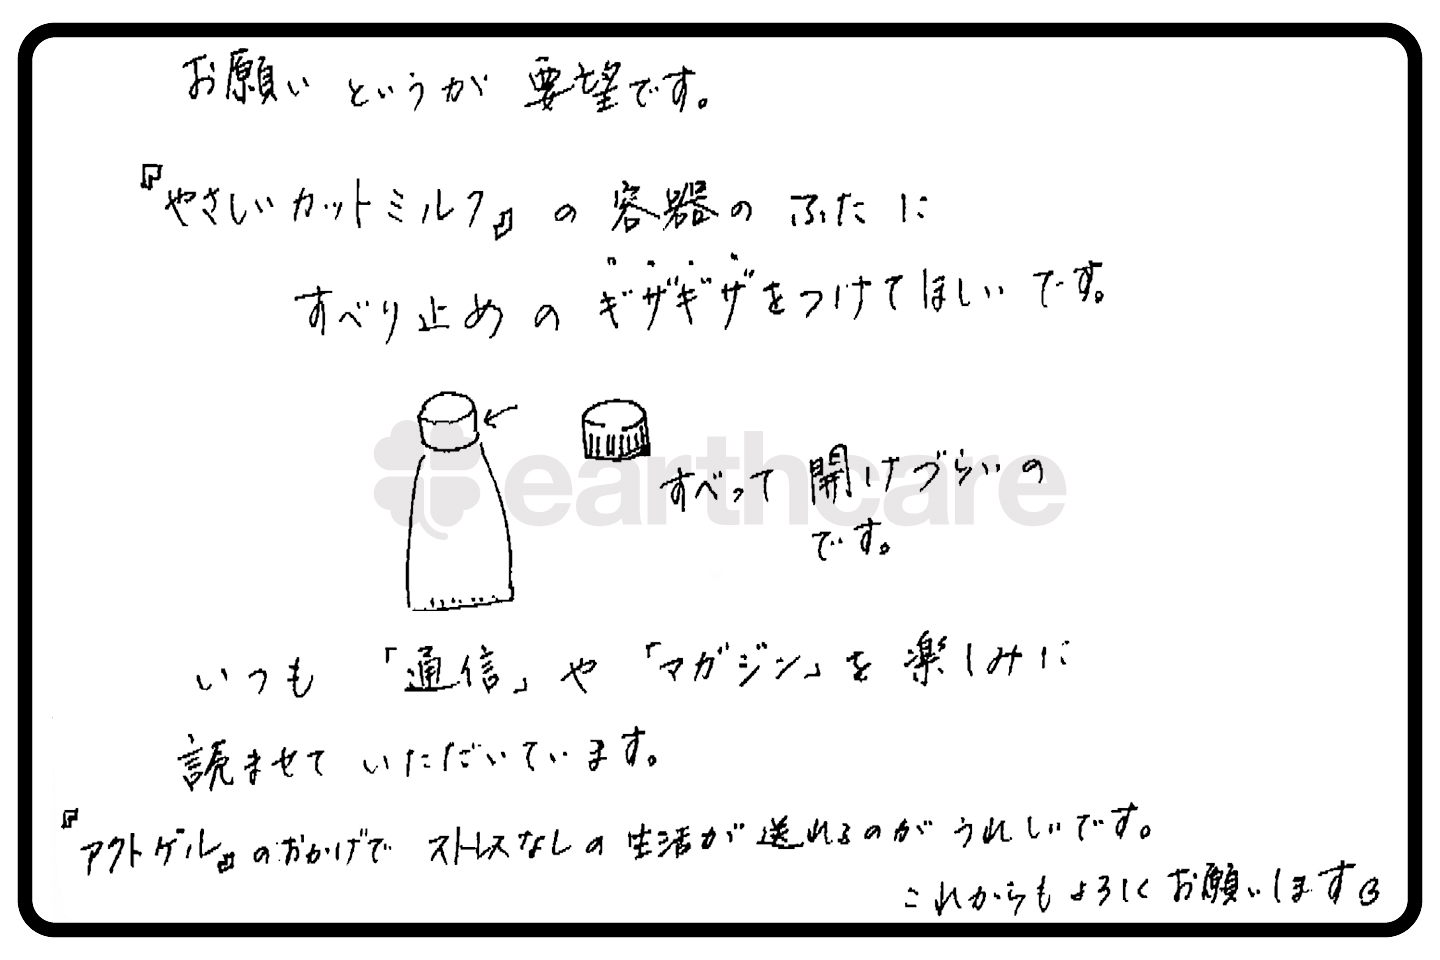 お願いというが要望です。
『やさしいカットミルク』の容器のふたに
すべり止めのギザギザをつけてほしいです。
earthcare
すべって開けづらいの
です。
いつも「通信」や「マガジン」を楽しみに
読ませていただいています。
『アクトゲル』のおかげでストレスなしの生活が送れるのがうれしいです。
これからもよろしくお願いします